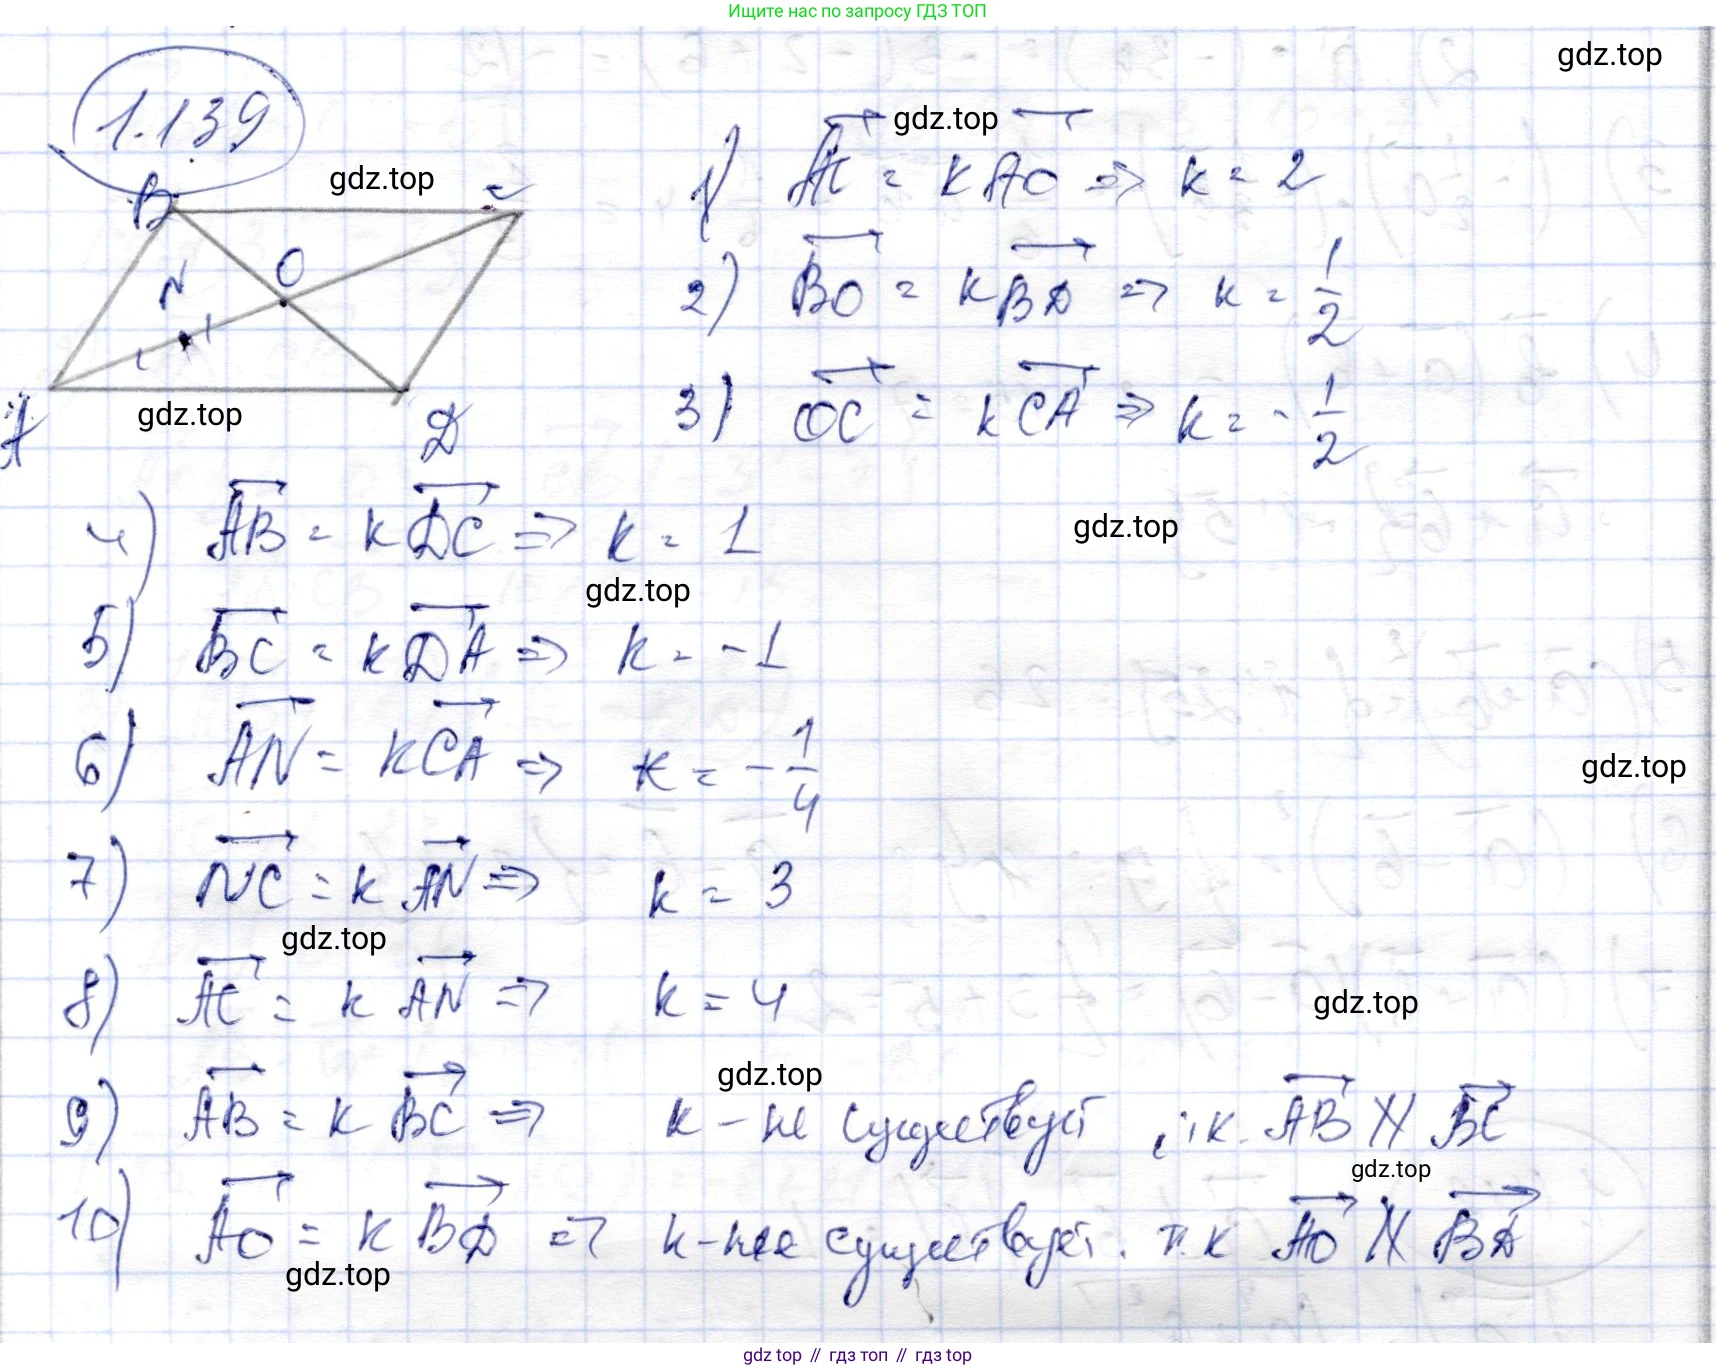 Ищите нас по запросу ГДЗ ТОП
gdz.top
1.139
gdz.top
gdz.top
B C
N O
A D
gdz.top
1) AC = k AO => k = 2
2) BO = k BD => k = 1/2
3) OC = k CA => k = -1/2
4) AB = k DC => k = 1
gdz.top
gdz.top
5) BC = k DA => k = -1
6) AN = k CA => k = -1/4
gdz.top
7) NC = k AN => k = 3
gdz.top
8) AC = k AN => k = 4
gdz.top
gdz.top
9) AB = k BC => k - не существует, т.к. AB ∦ BC
gdz.top
10) AO = k BD => k - не существует. т.к AO ∦ BD
gdz.top
gdz top // гдз топ // гдз top